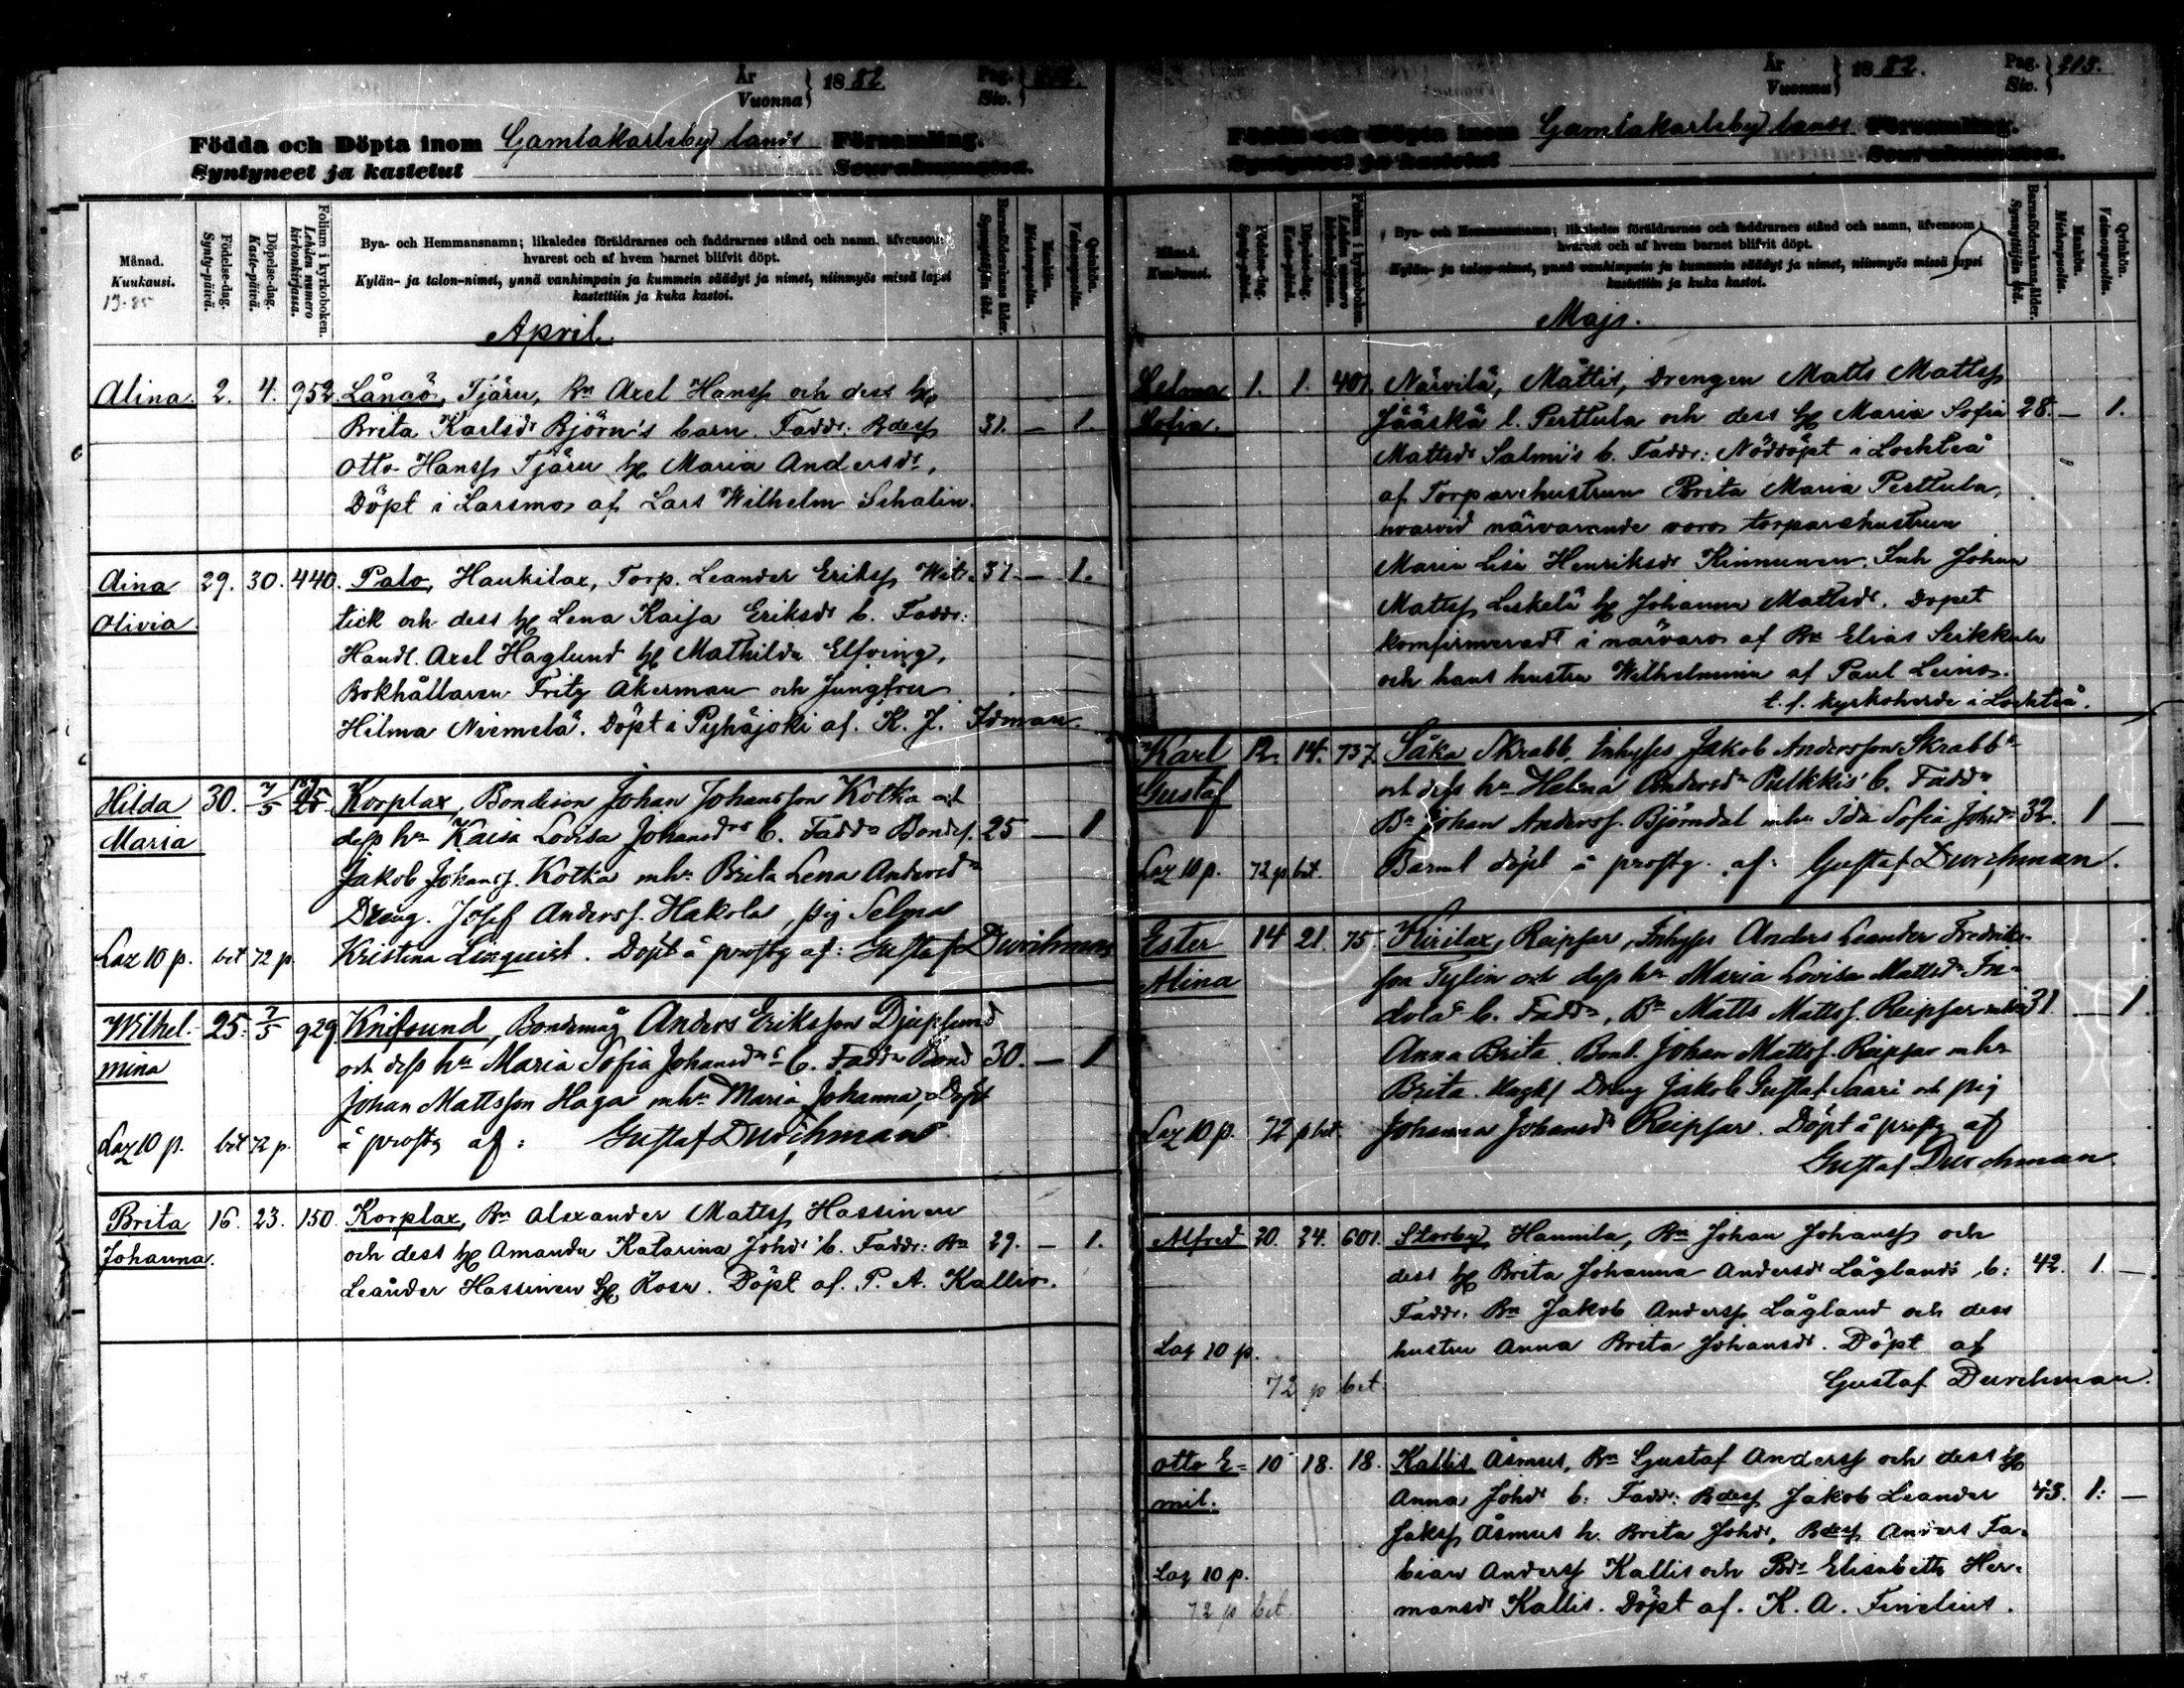 År
Vuonna } 1882 Pag.
Siv.
Födda och Döpta inom Gamlakarleby lands Församling.
Syntyneet ja kastetut Seurakunnassa.
Månad.
Kuukausi.
13-85
Födelse-dag.
Synty-päivä.
Döpelse-dag.
Kaste-päivä.
Folium i kyrkoboken.
Lehden numero kirkonkirjassa.
Bya- och Hemmansnamn; likaledes föräldrarnes och faddrarnes stånd och namn, äfvensom
hvarest och af hvem barnet blifvit döpt.
Kylän- ja talon-nimet, ynnä vanhimpain ja kummein säädyt ja nimet, niinmyös missä lapsi
kastettiin ja kuka kastoi.
Barnaföderskans ålder.
Synnyttäjän ikä.
Mankön.
Miehenpuolta.
Qvinkön.
Vaimonpuolta.
April.
Alina. 2. 4. 952. Långö, Tjäru, Bn Axel Hanss och dess h
Brita Karlsdr Björn's barn. Faddr: Bdes 31. — 1.
Otto Hanss Tjäru h Maria Andersdr,
Döpt i Larsmo af Lars Wilhelm Schalin.
Aina 29. 30. 440. Palo, Haukilax, Torp. Leander Eriks Wit- 37. — 1.
Olivia. tick och dess h Lena Kajsa Eriksdr b. Faddr:
Handl. Axel Haglund h Mathilda Elfving,
Bokhållaren Fritz Åkerman och Jungfru
Hilma Niemelä. Döpt i Pyhäjoki af K. J. Idman.
Hilda 30. 7/5 Korplax, Bondeson Johan Johansson Kotka och
Maria dess hu Kaisa Lovisa Johansdrs b. Faddr Bondes. 25 — 1
Jakob Johanss. Kotka m hu Brita Lena Andersdr
Dräng. Josef Anderss. Hakola, pig Selma
Lax 10 p. bet 72 p. Kristina Linquist. Döpt å prostg af: Gustaf Durchman
Wilhel- 25. 7/5 929 Knifsund, Bondemåg Anders Eriksson Djupsund
mina och dess hu Maria Sofia Johansdrs b. Faddr Bond 30. — 1
Johan Mattsson Haga m hu Maria Johanna, Döpt
Lax 10 p. bet 72 p. å prostg af: Gustaf Durchman
Brita 16. 23. 150. Korplax, Bn Alexander Matts Hassinen
Johanna. och dess h Amanda Katarina Johdr b. Faddr: Bn 29. — 1.
Leander Hassinen h Rosa. Döpt af P. A. Kallio.
År
Vuonna } 1882. Pag.
Siv. } 213.
Födda och Döpta inom Gamlakarleby lands Församling.
Syntyneet ja kastetut Seurakunnassa.
Månad.
Kuukausi.
Födelse-dag.
Synty-päivä.
Döpelse-dag.
Kaste-päivä.
Folium i kyrkoboken.
Lehden numero kirkonkirjassa.
Bya- och Hemmansnamn; likaledes föräldrarnes och faddrarnes stånd och namn, äfvensom
hvarest och af hvem barnet blifvit döpt.
Kylän- ja talon-nimet, ynnä vanhimpain ja kummein säädyt ja nimet, niinmyös missä lapsi
kastettiin ja kuka kastoi.
Barnaföderskans ålder.
Synnyttäjän ikä.
Mankön.
Miehenpuolta.
Qvinkön.
Vaimonpuolta.
Maji.
Selma 1. 1. 401. Närvilä, Mattis, Drengen Matts Matts
Sofia. Jääskä l. Perttula och dess h Maria Sofia 28. — 1.
Mattsdr Salmi's b. Faddr: Nöddöpt i Lochteå
af Torparehustrun Brita Maria Perttula,
hvarvid närvarande voro torparehustrun
Maria Lisa Henriksdr Kinnunen, Inh Johan
Matts Leskelä h Johanna Mattsdr. Dopet
komfirmeradt i närvaro af Bn Elias Seikkala
och hans hustru Wilhelmina af Paul Leino.
t. f. kyrkoherde i Lochteå.
Karl 12. 14. 737. Såka Skrabb, Inhyses Jakob Andersson Skrabb
Gustaf och dess hu Helena Andersdr Pulkkis' b. Faddr
Bn Johan Anderss. Björndal m hu Ida Sofia Johdr 32. 1 —
Lax 10 p. 72 p bet. Barnet döpt å prostg. af: Gustaf Durchman.
Ester 14 21. 75. Kirilax, Reipsar, Inhyses Anders Leander Fredriks-
Alina son Tylin och dess hu Maria Lovisa Mattsdr In-
dola b. Faddr, Bn Matts Matts. Reipsar m hu 31. — 1.
Anna Brita. Bond. Johan Matts. Reipsar m hu
Brita. Dräng Jakob Gustaf Saari och pig
Lax 10 p. 72 p bet. Johanna Johansdr Reipsar. Döpt å prostg af
Gustaf Durchman.
Alfred 20. 24. 601. Storby, Hannila, Bn Johan Johans och
dess h Brita Johanna Andersdr Lågland's b: 42. 1. —
Faddr. Bn Jakob Anders Lågland och dess
Lax 10 p. hustru Anna Brita Johansdr. Döpt af
72 p bet. Gustaf Durchman.
Otto E- 10 18. 18. Kallis Åsmus, Bn Gustaf Anders och dess h
mil. Anna Johdr b: Faddr: Bdes Jakob Leander 43. 1. —
Jaks Åsmus h. Brita Johdr, Bdes Anders Fa-
Lax 10 p. bian Anders Kallis och Bdr Elisabeth Her-
72 p bet. mansdr Kallis. Döpt af K. A. Finelius.